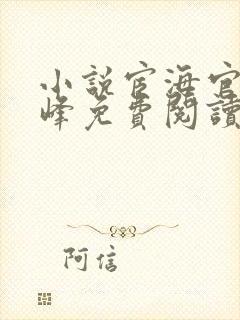 小說官海官
峰免費閱讀
阿信